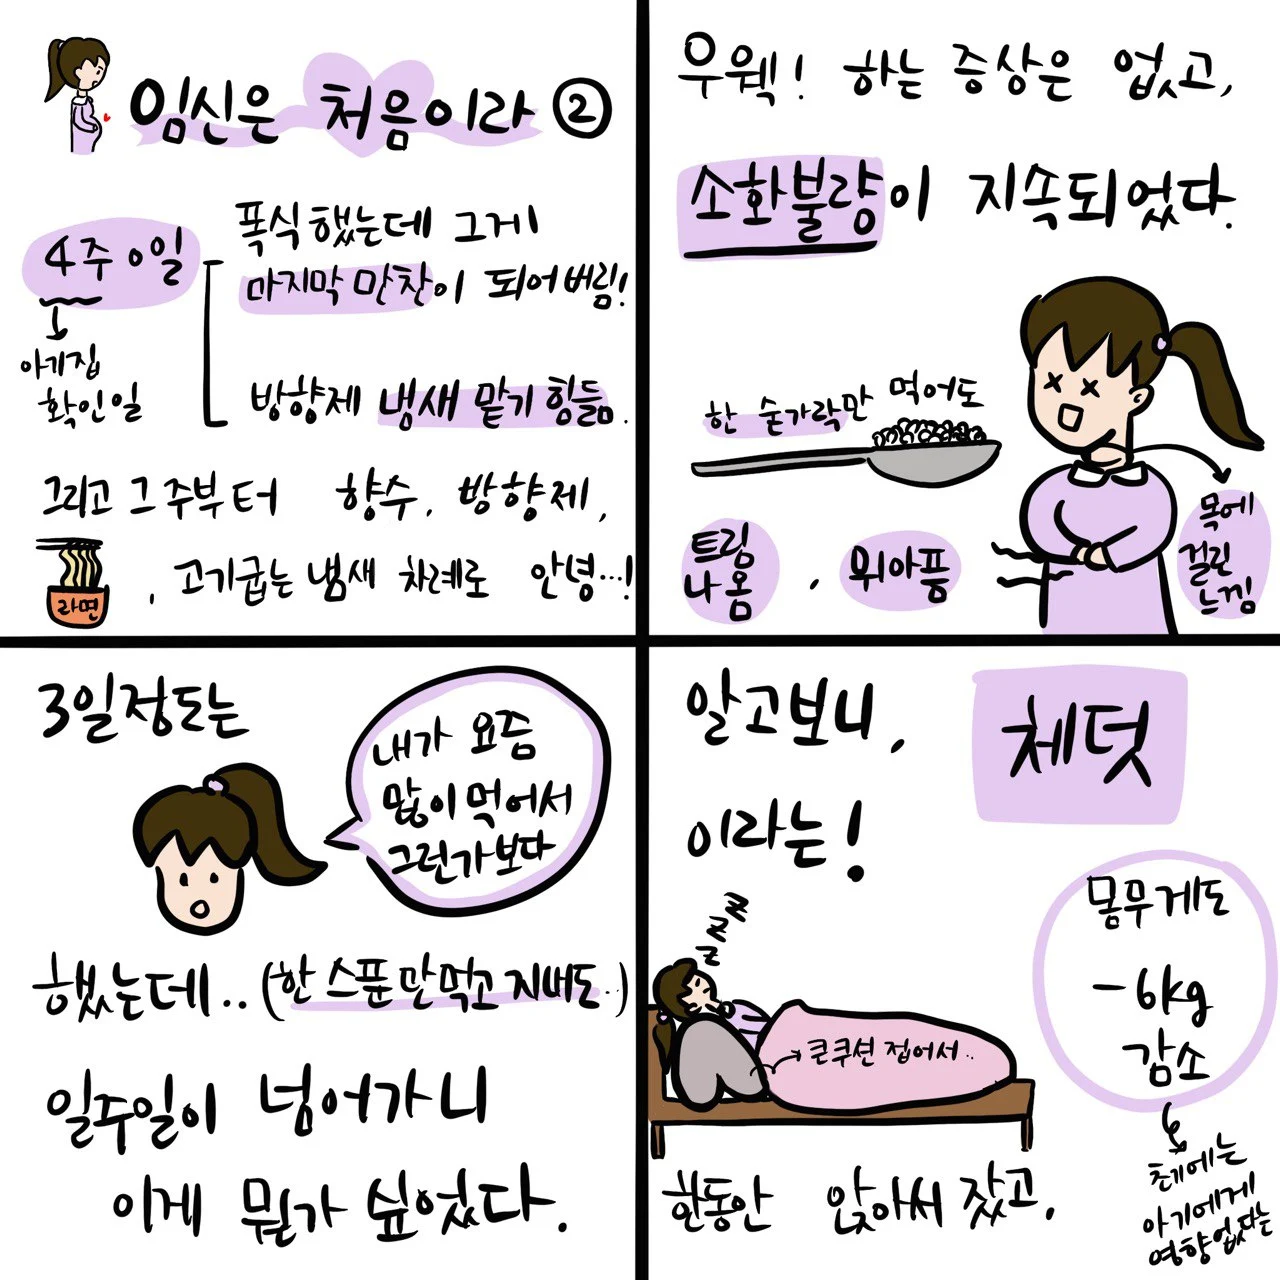 임신은 처음이라 ②
4주 0일
아기집
확인일
폭식했는데 그게
마지막 만찬이 되어버림!
방향제 냄새 맡기 힘듦.
그리고 그 주부터 향수, 방향제,
라면
, 고기굽는 냄새 차례로 안녕…!
우웩! 하는 증상은 없고,
소화불량이 지속되었다.
한 숟가락만 먹어도
트림
나옴
, 위아픔
목에
걸린
느낌
3일정도는
내가 요즘
많이 먹어서
그런가보다
했는데.. (한 스푼만 먹고 지내도..)
일주일이 넘어가니
이게 뭔가 싶었다.
알고보니, 체덧
이라는!
몸무게도
-6kg
감소
초기에는
아기에게
영향 없다는
큰쿠션 접어서..
한동안 앉아서 잤고,